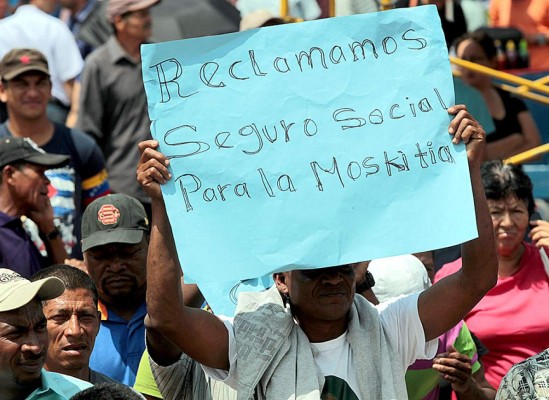 Reclamamos
Seguro Social
Para la Moskitia